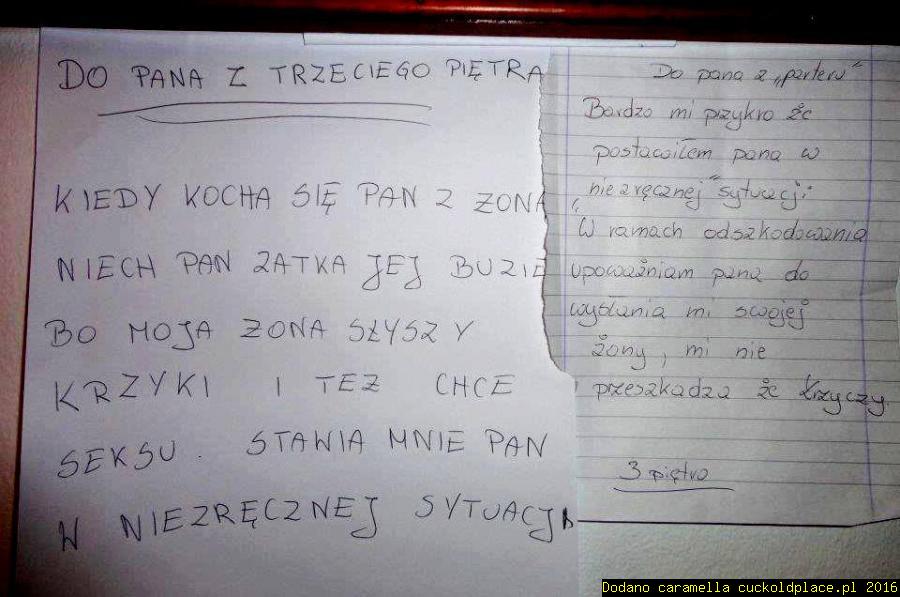 DO PANA Z TRZECIEGO PIĘTRA
KIEDY KOCHA SIĘ PAN Z ŻONĄ
NIECH PAN ZATKA JEJ BUZIE
BO MOJA ŻONA SŁYSZY
KRZYKI I TEZ CHCE
SEKSU. STAWIA MNIE PAN
W NIEZRĘCZNEJ SYTUACJI
Do pana z "parteru"
Bardzo mi przykro że
postawiłem pana w
"niezręcznej" sytuacji.
W ramach odszkodowania
upoważniam pana do
wysłania mi swojej
żony, mi nie
przeszkadza że krzyczy.
3 piętro
Dodano caramella cuckoldplace.pl 2016